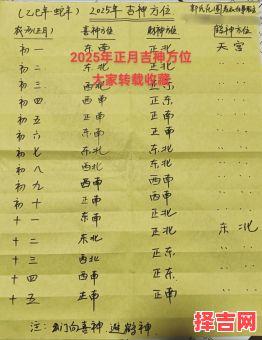 (乙巳年 蛇年) 2025年 吉神方位
农历(正月) 喜神方位 财神方位 鹤神方位
初一 东南 正北 天宫
2025年正月吉神方位
初二 东北 正北 〃
大家转载收藏
初三 西北 正东 〃
初四 西南 正东 〃
初五 正南 正南 〃
初六 东南 正南 〃
初七 东北 正北 〃
初八 西北 正北 〃
初九 西南 正东 〃
初十 正南 正东 〃
十一 东南 正北 〃
十二 东北 正北 东北
十三 西北 正东 〃
十四 西南 正东 〃
十五 正南 正南 〃
注:出门向喜神,避鹤神
择吉网